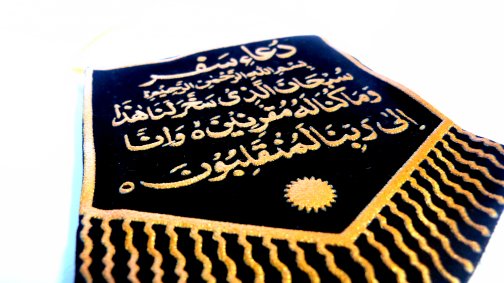 دُعَاءِ سَفَر
بِسْمِ اللّٰهِ الرَّحْمٰنِ الرَّحِيْمِ
سُبْحَانَ الَّذِىْ سَخَّرَ لَنَا هٰذَا
وَمَا كُنَّا لَهُ مُقْرِنِيْنَ ○ وَاِنَّا
اِلٰى رَبِّنَا لَمُنْقَلِبُوْنَ ○